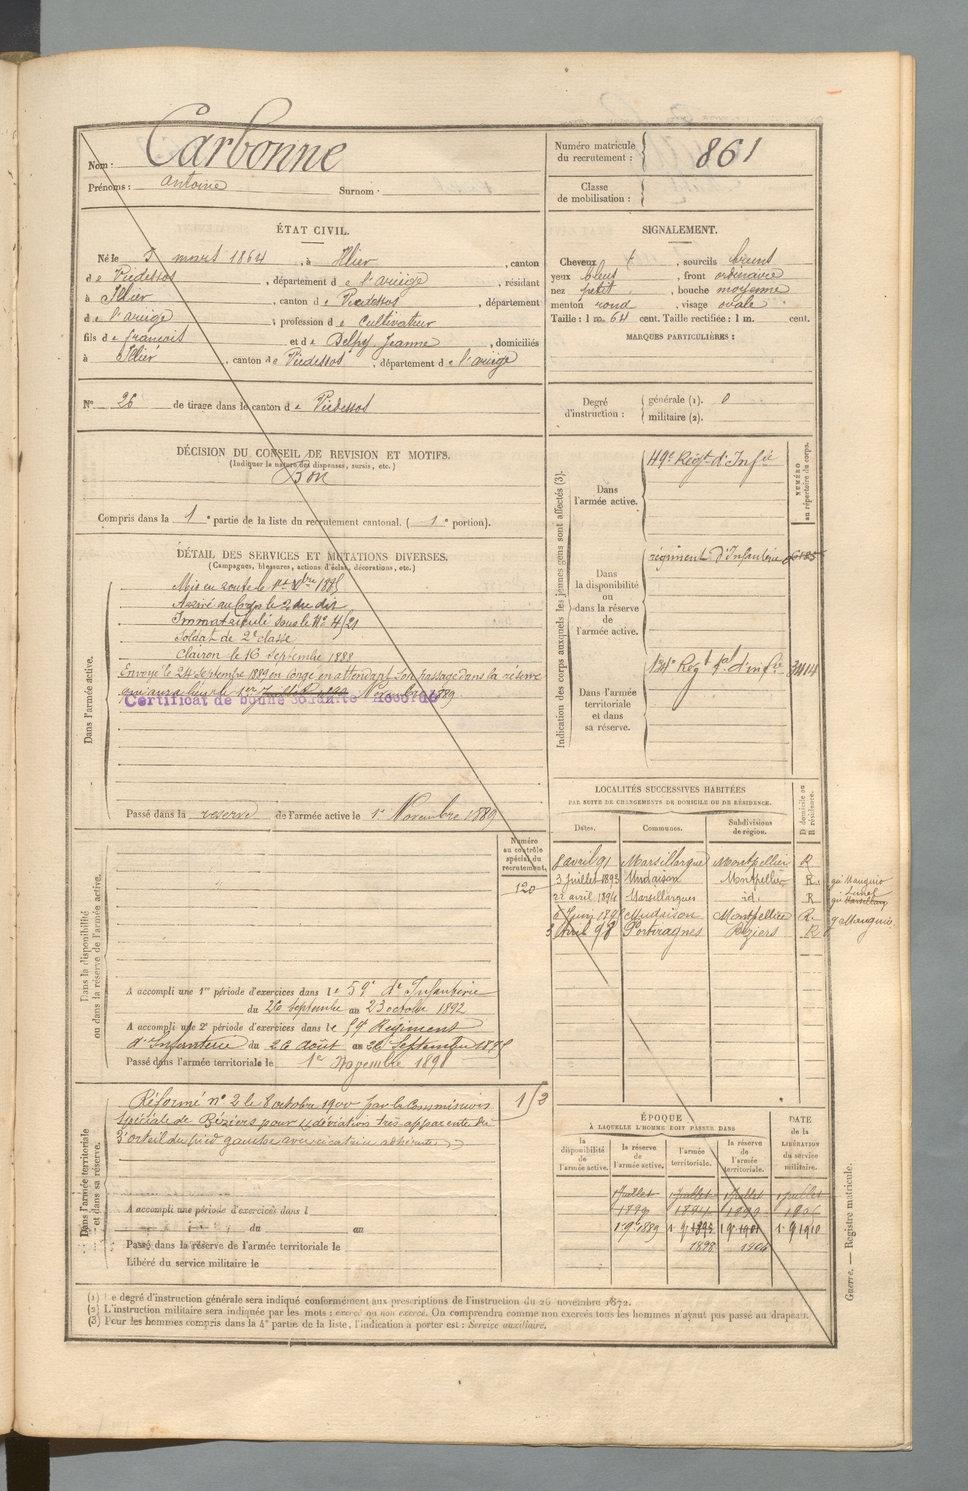 Nom : Carbonne
Prénoms : Antoine Surnom :
Numéro matricule du recrutement : 861
Classe de mobilisation :
ÉTAT CIVIL.
Né le 5 mars 1864, à Illier, canton
de Vicdessos, département de l'ariège, résidant
à Illier, canton de Vicdessos, département
de l'ariège, profession de cultivateur
fils de françois et de Delpy Jeanne, domiciliés
à Illier, canton de Vicdessos, département de l'ariège
N° 26 de tirage dans le canton de Vicdessos
SIGNALEMENT.
Cheveux t, sourcils bruns
yeux bleus, front ordinaire
nez petit, bouche moyenne
menton rond, visage ovale
Taille : 1 m. 64 cent. Taille rectifiée : 1 m. cent.
MARQUES PARTICULIÈRES :
Degré d'instruction : générale (1). 0
militaire (2).
DÉCISION DU CONSEIL DE REVISION ET MOTIFS.
(Indiquer la nature des dispenses, sursis, etc.)
Bon
Compris dans la 1e partie de la liste du recrutement cantonal. (1e portion).
DÉTAIL DES SERVICES ET MUTATIONS DIVERSES.
(Campagnes, blessures, actions d'éclat, décorations, etc.)
Dans l'armée active.
Mis en route le 1er Xbre 1885
Arrivé au Corps le 2 du dit
Immatriculé sous le N° 4521
Soldat de 2e classe
Clairon le 16 Septembre 1888
Envoyé le 24 septembre 1889 en congé en attendant son passage dans la réserve
qui aura lieu le 1er Novembre 1889
Certificat de bonne conduite Accordé
Passé dans la reserve de l'armée active le 1er Novembre 1889
Indication des corps auxquels les jeunes gens sont affectés (3).
NUMÉRO au répertoire du corps.
Dans l'armée active.
49e Régt d'Infie
Dans la disponibilité ou dans la réserve de l'armée active.
régiment d'Infanterie
Dans l'armée territoriale et dans sa réserve.
134e Regt tal d'infie
LOCALITÉS SUCCESSIVES HABITÉES
PAR SUITE DE CHANGEMENTS DE DOMICILE OU DE RÉSIDENCE.
Dates. Communes. Subdivisions de région. D domicile ou R résidence.
8 avril 91 Marsillargues Montpellier R
3 Juillet 1893 Mudaison Montpellier R gie Mauguio
22 avril 1894 Marsillargues id. R gie Lunel
6 Juin 1895 Mudaison Montpellier R g Mauguio
3 Avril 98 Portiragnes Béziers R
Dans la disponibilité ou dans la réserve de l'armée active.
Numéro au contrôle spécial du recrutement.
120
A accompli une 1re période d'exercices dans le 59e d'Infanterie
du 26 Septembre au 23 octobre 1892
A accompli une 2e période d'exercices dans le 59e Régiment
d'Infanterie du 26 août au 26 Septembre 1895
Passé dans l'armée territoriale le 1er Novembre 1898
Dans l'armée territoriale et dans sa réserve.
Réformé n° 2 le 8 octobre 1900 par la Commission
Spéciale de Béziers pour "déviation très apparente du
3e orteil du pied gauche avec cicatrice adhérente"
A accompli une période d'exercices dans l
du au
Passé dans la réserve de l'armée territoriale le
Libéré du service militaire le
ÉPOQUE
À LAQUELLE L'HOMME DOIT PASSER DANS
la disponibilité de l'armée active. la réserve de l'armée active. l'armée territoriale. la réserve de l'armée territoriale. DATE de la LIBÉRATION du service militaire.
1 juillet 1 juillet 1 juillet 1 juillet
1er 9bre 1889 1 9 1895 1 9 1901 1 9 1910
1898 1904
Guerre. — Registre matricule.
(1) Le degré d'instruction générale sera indiqué conformément aux prescriptions de l'instruction du 26 novembre 1872.
(2) L'instruction militaire sera indiquée par les mots : exercé ou non exercé. On comprendra comme non exercés tous les hommes n'ayant pas passé au drapeau.
(3) Pour les hommes compris dans la 4e partie de la liste, l'indication à porter est : Service auxiliaire.